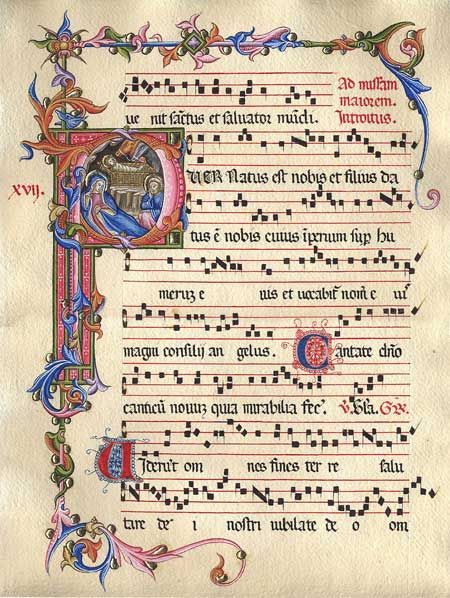 Ad missam
maiorem.
ue nit sāctus et saluator mūdi. Introitus.
xvij.
PUER Natus est nobis et filius da
tus ē nobis cuius īperium sup hu
meruz e ius et uocabit nom̄ e
magni consilij an gelus. Cantate dño
canticū nouuz quia mirabilia fec̄. V. Gla.
Uiderūt om nes fines ter re salu
tare de i nostri iubilate de o om